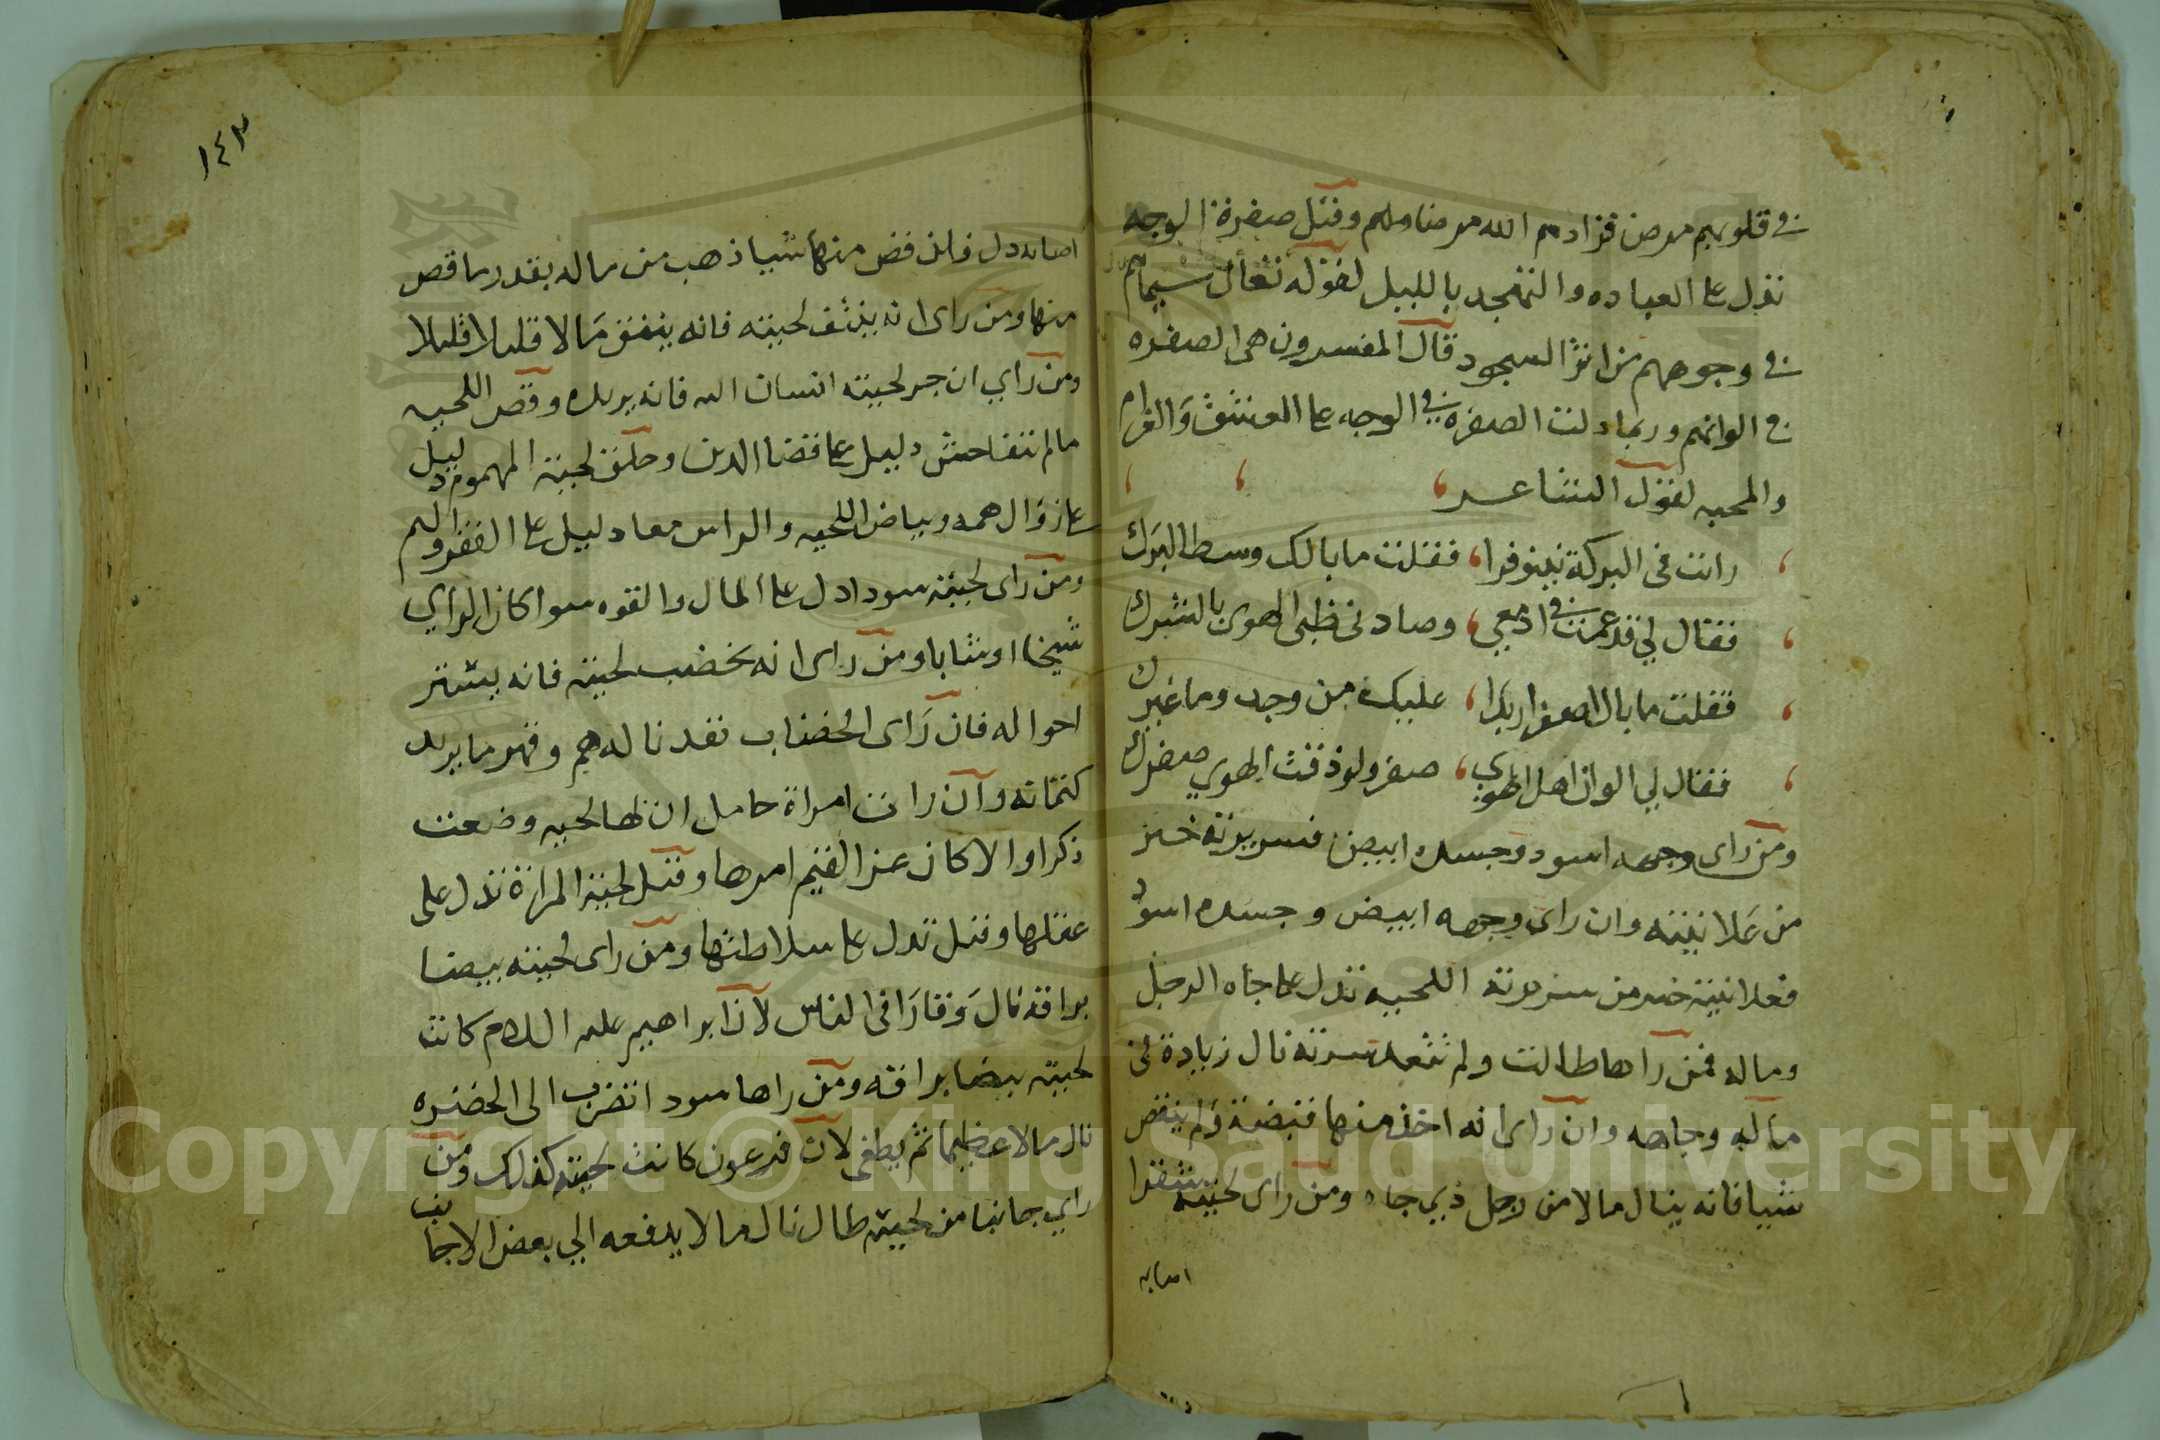 في قلوبهم مرض فزادهم الله مرضا ولهم وقيل صفرة الوجه
تدل على العباده والتهجد بالليل لقوله تعالى سيماهم
في وجوههم من اثر السجود قال المفسرون هي الصفره
في الوانهم وربما دلت الصفرة في الوجه على العشق والغرام
والمحبه لقول الشاعر
رايت في البركة نينوفرا، فقلت ما بالك وسط البرك
فقال لي قد غمت في ادمعي، وصادني ظبي الهوى بالشرك
فقلت ما بال اصفرار بدا، عليك من وجد وما غيرك
فقال لي الوان اهل الهوى، صفر ولو ذقت الهوى صفرك
ومن راى وجهه اسود وجسده ابيض فسريرته خير
من علانيته وان راى وجهه ابيض وجسده اسود
فعلانيته خير من سريرته اللحيه تدل على جاه الرجل
وماله فمن راها طالت ولم تتعد سرته نال زيادة في
ماله وجاهه وان راى انه اخذ منها قبضة ولم ينقص
شيا فانه ينال مالا من رجل ذي جاه ومن راى لحيته شقرا
اصابه
١٤٣
اصابه دل فان قص منها شيا ذهب من ماله بقدر ما قص
منها ومن راى انه ينتف لحيته فانه ينفق مالا قليلا قليلا
ومن راي ان جر لحيته انسان اليه فانه يرثه وقص اللحيه
مالم تتفاحش دليل على قضا الدين وحلق لحية المهموم دليل
على زوال همه وبياض اللحيه والراس معا دليل على الفقر والهم
ومن راى لحيته سودا دل على المال والقوه سوا كان الراي
شيخا او شابا ومن راى انه يخضب لحيته فانه يستر
احواله فان راى الخضاب نفد ناله هم وقهر ما يريد
كتمانه وان رات امراة حامل ان لها لحيه وضعت
ذكرا والا كان عز القيم امرها وقيل لحية المراة تدل على
عقلها وقيل تدل على سلاطتها ومن راى لحيته بيضا
براقه نال وقارا في الناس لان ابراهيم عليه السلام كانت
لحيته بيضا براقه ومن راها سودا تضرب الى الخضره
نال مالا عظيما ثم يطغى لان فرعون كانت لحيته كذلك ومن
راي جانبا من لحيته طال نال مالا يدفعه الي بعض الاجانب
Copyright © King Saud University